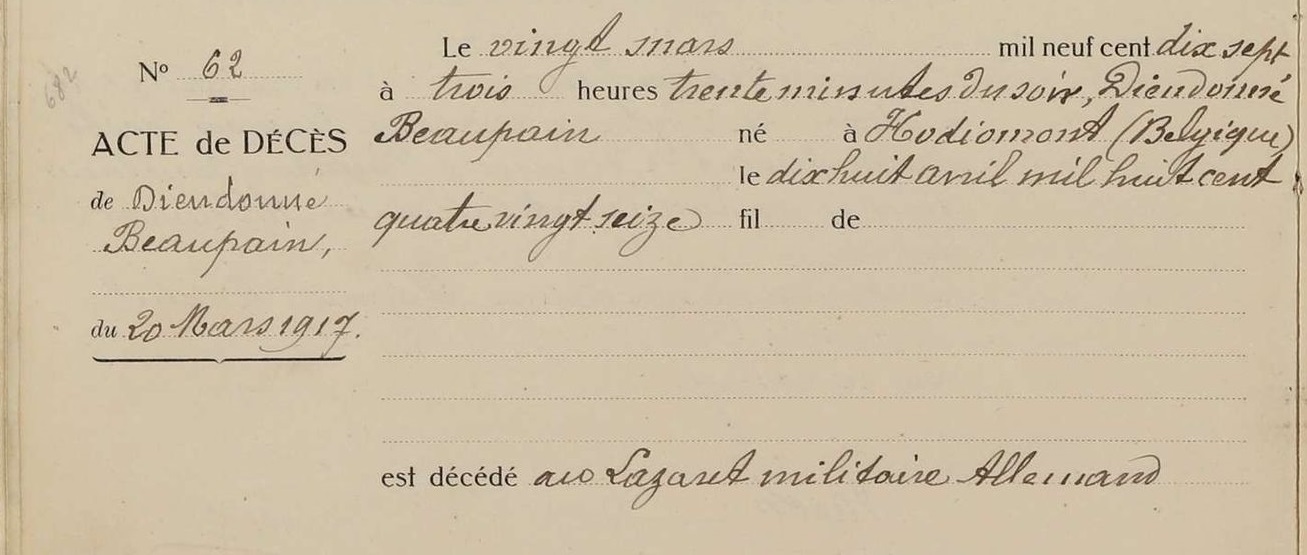 682
N° 62
ACTE de DÉCÈS
de Dieudonné
Beaupain,
du 20 Mars 1917.
Le vingt mars mil neuf cent dix sept
à trois heures trente minutes du soir, Dieudonné
Beaupain né à Hodiomont (Belgique)
le dix huit avril mil huit cent
quatre vingt seize fil de
est décédé au Lazaret militaire Allemand